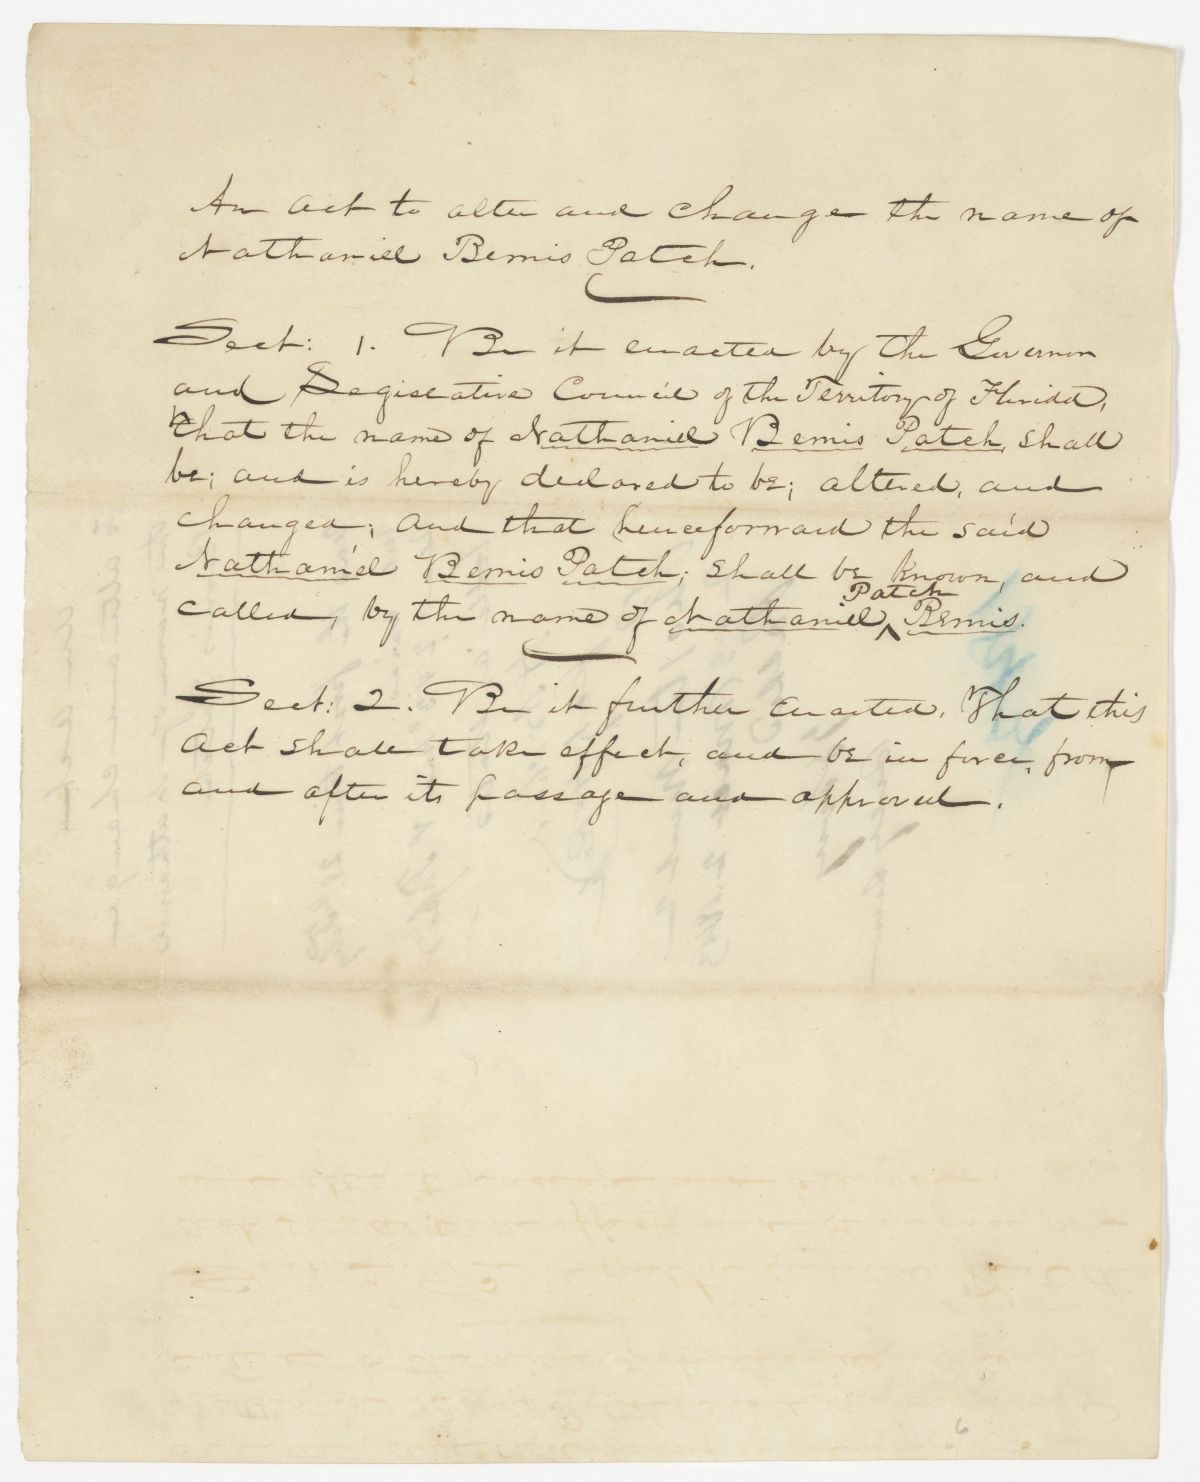 An act to alter and change the name of
Nathaniel Bemis Patch.
Sect: 1. Be it enacted by the Governor
and Legislative Council of the Territory of Florida,
That the name of Nathaniel Bemis Patch, shall
be; and is hereby declared to be; altered, and
changed; and that henceforward the said
Nathaniel Bemis Patch; shall be known, and
called, by the name of Nathaniel ^ Patch Bemis.
Sect: 2. Be it further enacted, That this
act shall take effect, and be in force, from
and after its passage and approval.
6